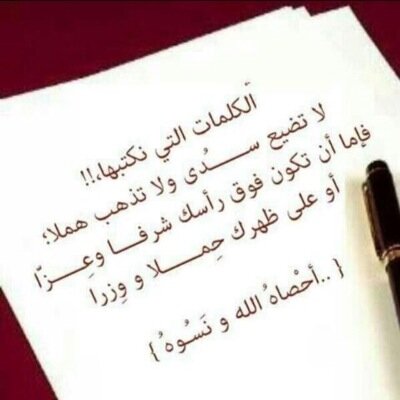 الكلمات التي نكتبها،!!
لا تضيع ســـــدُى ولا تذهب هملا؛
فإما أن تكون فوق رأسك شرفـــا وعِـــزّا
أو على ظهرك حِمـــــلا و وِزرا
{ ..أحْصَاهُ الله و نَسُوهُ }